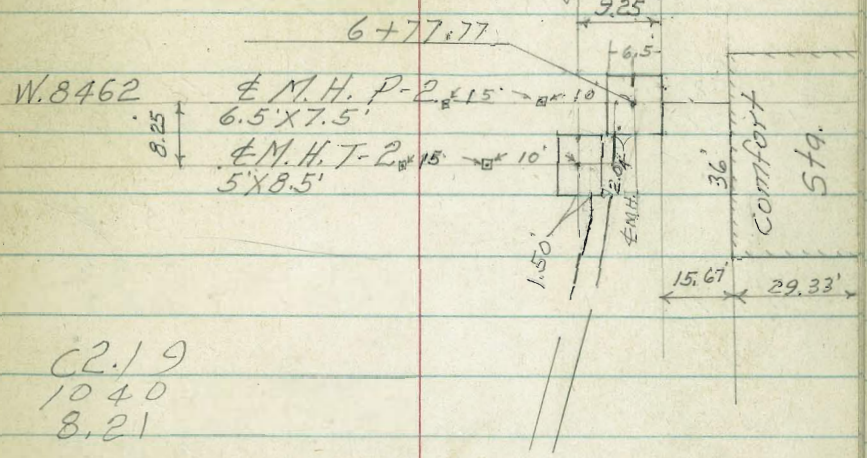 9.25
6+77.77
6.5
W.8462 ℄ M.H. P-2 15' 10'
6.5'X7.5'
8.25
℄ M.H. T-2 15' 10'
5'X8.5'
2.04
℄ M.H.
1.50'
36'
Comfort
Sta.
15.67' 29.33'
C2.19
1040
8.21